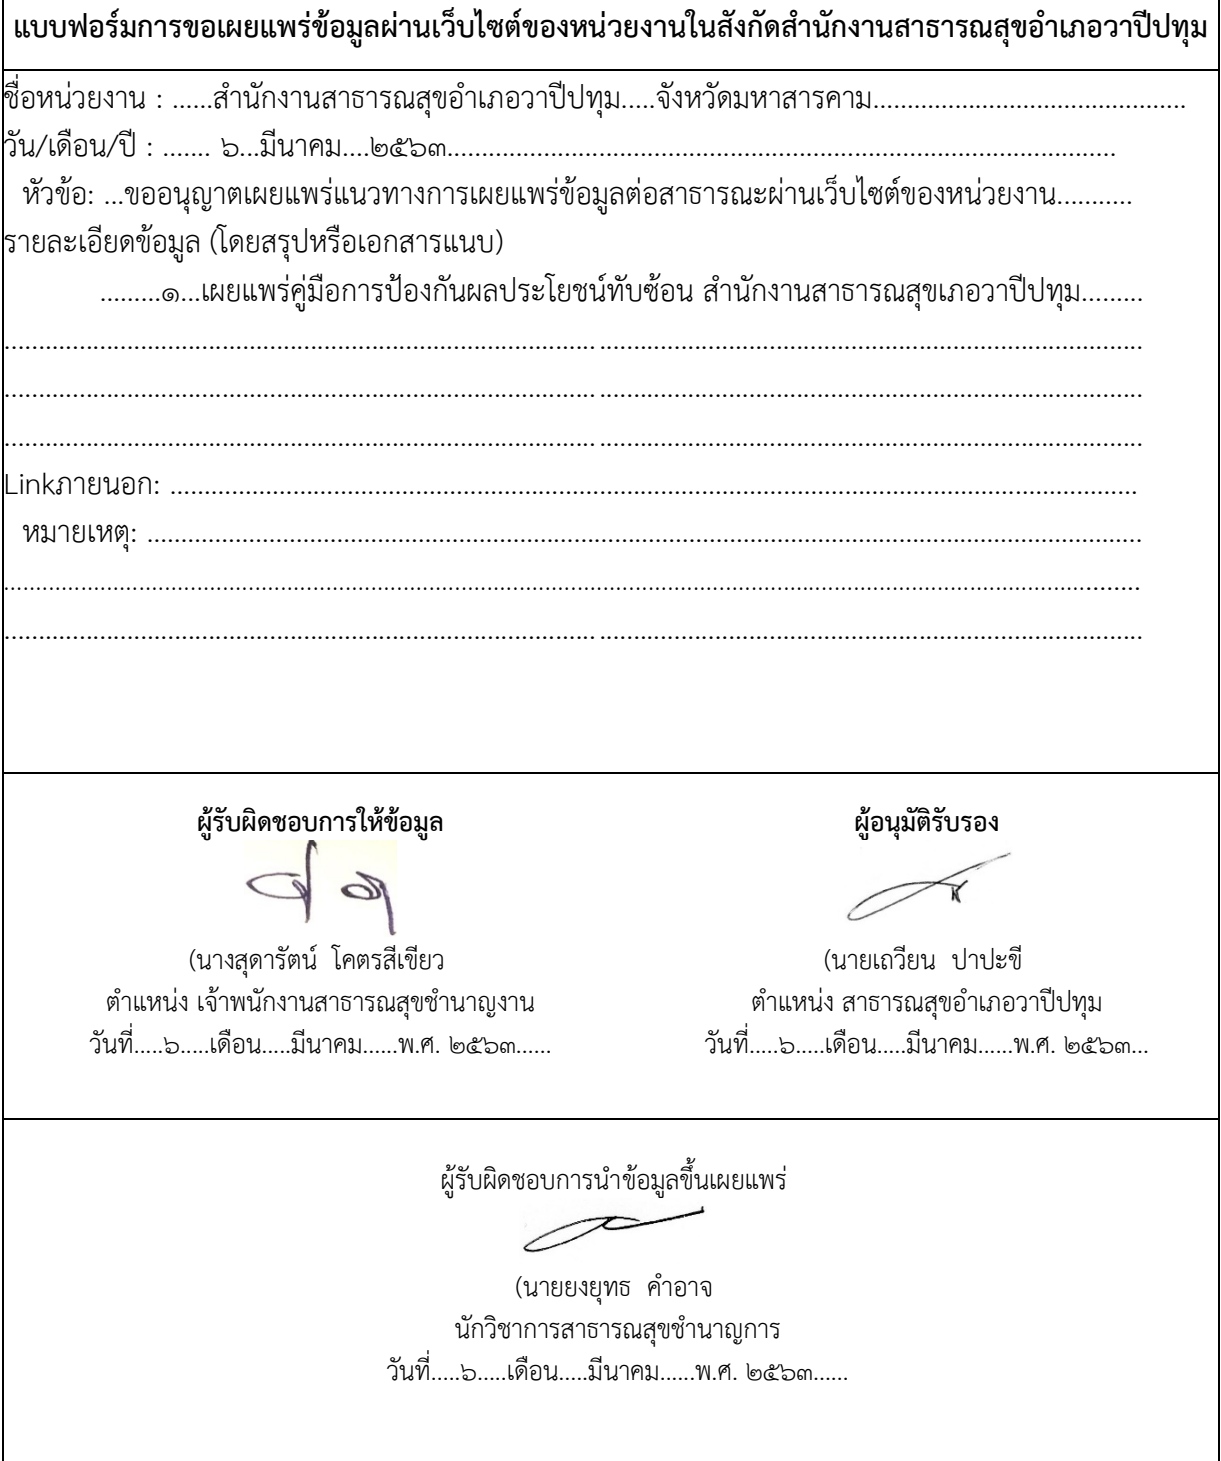 แบบฟอร์มการขอเผยแพร่ข้อมูลผ่านเว็บไซต์ของหน่วยงานในสังกัดสำนักงานสาธารณสุขอำเภอวาปีปทุม
ชื่อหน่วยงาน : ......สำนักงานสาธารณสุขอำเภอวาปีปทุม.....จังหวัดมหาสารคาม..............................................
วัน/เดือน/ปี : ....... ๖...มีนาคม....๒๕๖๓..................................................................................................
หัวข้อ: ...ขออนุญาตเผยแพร่แนวทางการเผยแพร่ข้อมูลต่อสาธารณะผ่านเว็บไซต์ของหน่วยงาน...........
รายละเอียดข้อมูล (โดยสรุปหรือเอกสารแนบ)
.........๑...เผยแพร่คู่มือการป้องกันผลประโยชน์ทับซ้อน สำนักงานสาธารณสุขเภอวาปีปทุม.........
Linkภายนอก: ..............................................................................................................................................
หมายเหตุ: ..................................................................................................................................................
ผู้รับผิดชอบการให้ข้อมูล
ผู้อนุมัติรับรอง
(นางสุดารัตน์ โคตรสีเขียว
(นายเถวียน ปาปะขี
ตำแหน่ง เจ้าพนักงานสาธารณสุขชำนาญงาน
ตำแหน่ง สาธารณสุขอำเภอวาปีปทุม
วันที่.....๖.....เดือน.....มีนาคม......พ.ศ. ๒๕๖๓......
วันที่.....๖.....เดือน.....มีนาคม......พ.ศ. ๒๕๖๓...
ผู้รับผิดชอบการนำข้อมูลขึ้นเผยแพร่
(นายยงยุทธ คำอาจ
นักวิชาการสาธารณสุขชำนาญการ
วันที่.....๖.....เดือน.....มีนาคม......พ.ศ. ๒๕๖๓......